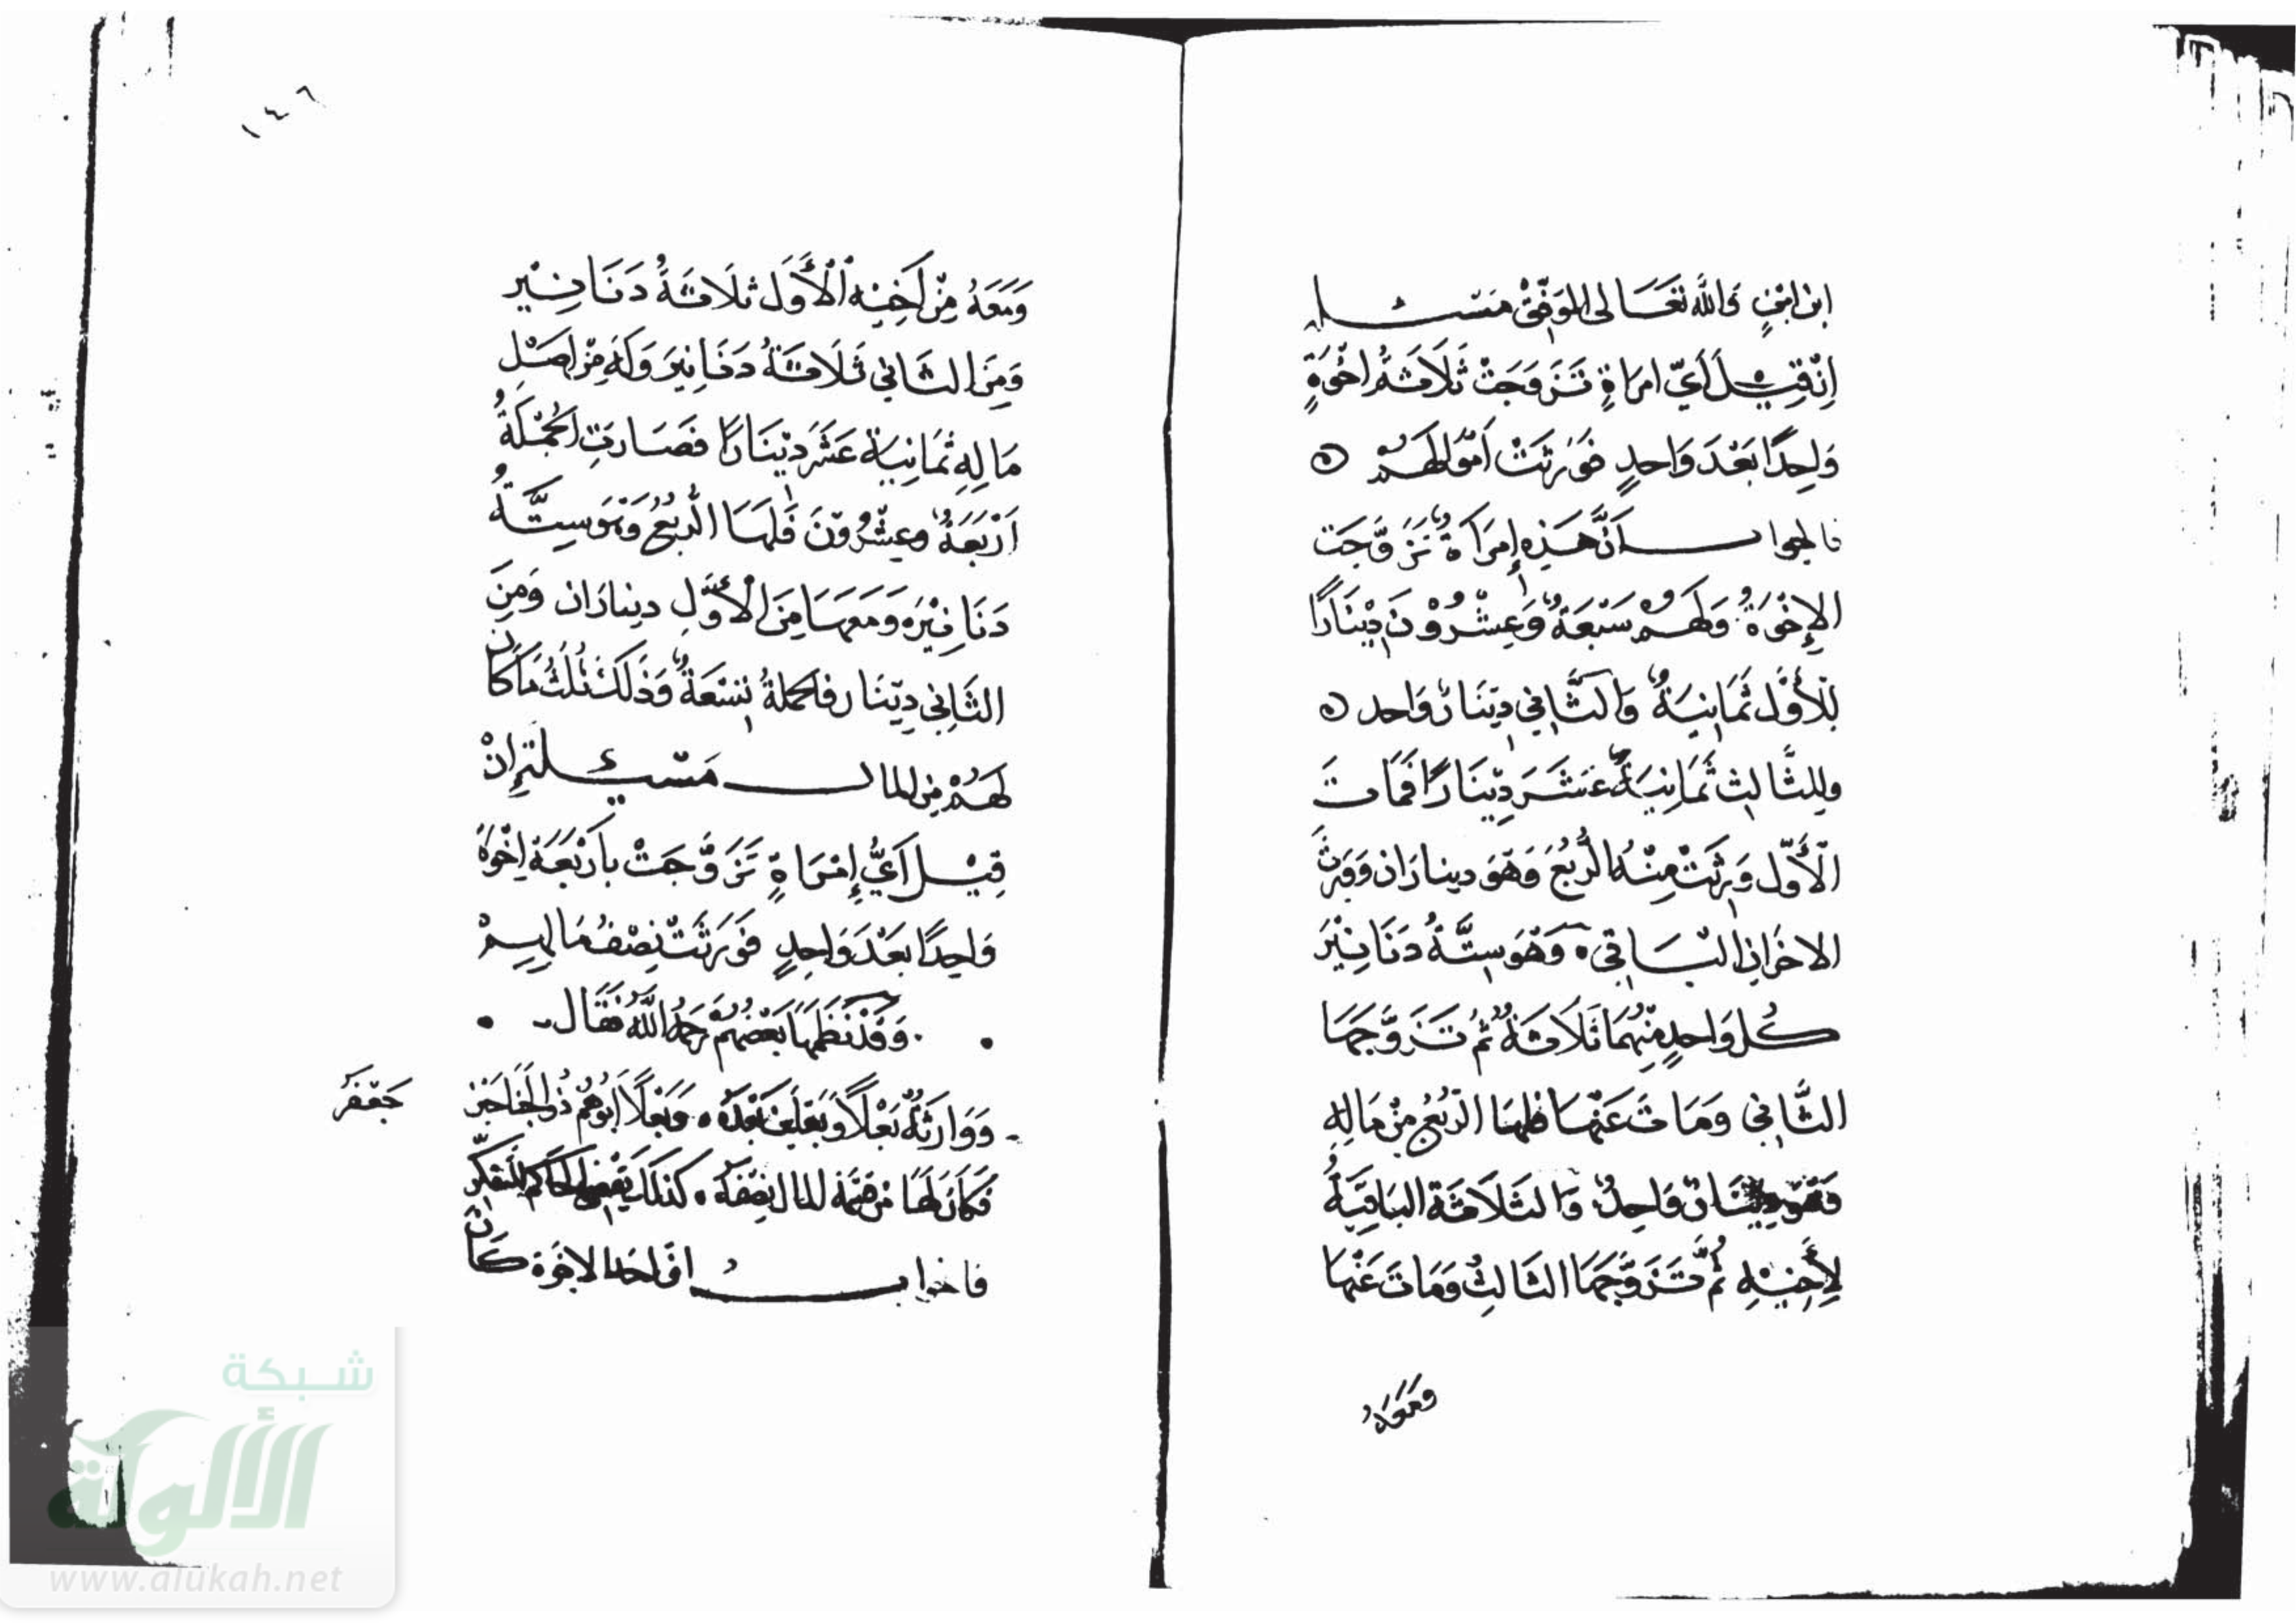 ابن ابنٍ وَالله تَعَالى الموَفِّق مَسْئلة
اِنْ قِيْلَ أَيّ امرَاةٍ تَزَوَجَتْ ثَلَاثَةُ اخْوَةٍ
وَاحِدًا بَعْدَ وَاحدٍ فوَرثَتْ أمْوَالهُمْ ۞
فالجواب أنَّ هَذِه إمرَأةٌ تَزَوَّجَت
الإخْوَةُ وَلهُمْ سَبْعَةٌ وَعِشْرُوْنَ دِيْنَارًا
للأوَّل ثَمَانِيَةٌ وَالثَّانِي دِيْنَارٌ وَاحد ۞
وللثَّالِث ثَمَانِيَةَ عَشَرَ دِيْنَارًا فَمَاتَ
الأَوّل وَرِثَتْ مِنْهُ الرُّبُعَ وَهوَ ديناران وَوَرثَ
الاخَرَانِ البَاقِي وَهُوَ سِتَّةُ دَنَانِيْرَ
كُل وَاحدٍ مِنْهُمَا ثَلَاثَةٌ ثُمَّ تَزَوَّجَهَا
الثَّانِي وَمَاتَ عَنْهَا فلهَا الرّبُع مِنْ مَالِهِ
فَهُوَ دِينَارٌ وَاحِدٌ وَالثَلَاثَة البَاقِيَةُ
لِأَخِيْهِ ثُمَّ تَزَوَّجَهَا الثَالِثُ وَمَاتَ عَنْهَا
وَمَعَهُ
١٤٦
وَمَعَهُ مِنْ أَخِيْهِ الْأَوَّل ثلَاثَةُ دَنَانِيْر
وَمِنَ الثَاني ثَلَاثَةُ دَنَانِيْرَ وَلَهُ مِنْ اصْلِ
مَالِهِ ثَمَانِيَةَ عَشَرَ دِيْنَارًا فَصَارَتِ الجُمْلَةُ
اَرْبَعَةٌ وَعِشْرُوْنَ فَلَهَا الرُّبُعُ وَهْوَ سِتَّةُ
دَنَانِيْرَ وَمَعَهَا مِنَ الأوَّلِ ديناران وَمِنَ
الثَانِي دِيْنَار فالجملةُ تِسْعَةٌ وَذَلِكَ ثلُثُ مَا كَانَ
لَهُمْ مِنَ المال مَسْئلة إِنْ
قِيْل أَيُّ إمْرَاةٍ تَزَوَّجَتْ بأرْبَعَة اِخْوَة
وَاحِدًا بَعْدَ وَاحِدٍ فوَرَثَتْ نِصْفُ مَالِهِمْ
وَقَدْ نَظَمَهَا بَعْضُهُمْ رَحِمَهُ اللَّهُ فَقَال
وَوَارِثَةٌ بَعْلًا وَبَعْلَيْن بَعْدَهُ وَبَعْلًا أَبُوهُمْ ذُو الجَنَاحَيْنِ
جَعْفَرُ
فَكَانَ لَهَا مِنْ قِسْمَة المال نِصْفَهُ كذلك يَقْضِي الحَاكِمُ المُتَفَكِّرُ
فالجواب انَّ احَدَ الاخوَة كَانَ
شبكة
الألوكة
www.alukah.net